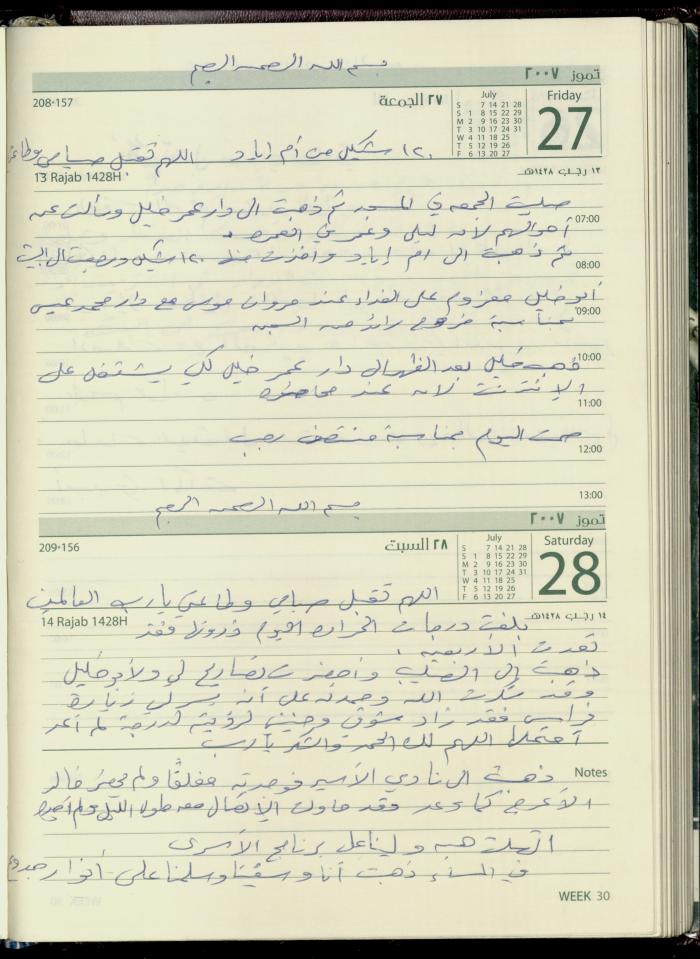 بسم الله الرحمن الرحيم
تموز ٢٠٠٧
208-157
٢٧ الجمعة
July
S 7 14 21 28
S 1 8 15 22 29
M 2 9 16 23 30
T 3 10 17 24 31
W 4 11 18 25
T 5 12 19 26
F 6 13 20 27
Friday
27
١٢٠ شيكل من أم إياد اللهم تقبل صيامي
13 Rajab 1428H
١٣ رجب ١٤٢٨هـ
صليت الجمعه في المسجد ثم ذهبت الى دار عمر خليل وسألت عن
07:00
أحوالهم لأنه ليلى وعمر في العمره.
ثم ذهبت الى ام إياد واخذت منها ١٢٠ شيكل ورجعت الى البيت
08:00
أبو خليل معزوم على الغداء عند مروان موسى مع دار محمد عيسى
09:00
بمناسبة خروج رائد من السجن
ذهب خليل بعد الظهر الى دار عمر خليل لكي يشتغل على
10:00
الإنترنت لأنه عند محاضره
11:00
صمت اليوم بمناسبة منتصف رجب
12:00
13:00
بسم الله الرحمن الرحيم
تموز ٢٠٠٧
209-156
٢٨ السبت
July
S 7 14 21 28
S 1 8 15 22 29
M 2 9 16 23 30
T 3 10 17 24 31
W 4 11 18 25
T 5 12 19 26
F 6 13 20 27
Saturday
28
اللهم تقبل صيامي وطاعتي يا رب العالمين
14 Rajab 1428H
١٤ رجب ١٤٢٨هـ
بلغت درجات الحراره اليوم ذروتها فقد
تعدت الأربعين.
ذهبت إلى الصليب وأحضرت تصاريح لي ولأبو خليل
وقد شكرت الله وحمدته على أنه يسر لي زيارة
فراس فقد زاد شوقي وحنيني لرؤيته لدرجة لم أعد
أحتملها اللهم لك الحمد والشكر يا رب
Notes
ذهبت الى نادي الأسير فوجدته مغلقًا ولم يحضر خالد
الأعرج كما وعد فقد حاولت الإتصال معه طوال الليل ولم
اتصلت هبه ولينا على برنامج الأسرى
في المساء ذهبت أنا و وسلمنا على أنوار
WEEK 30